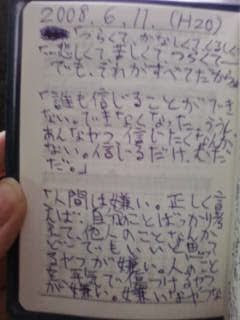 2008.6.11.(H20)
「つらくて かなしくて くるしく
「悲しくて苦しくて つらくて
でも、それがすべてだから」
「誰も信じることができ
ない。できなくなった。
あんなやつ 信じたくも
ない。信じるだけ、むだ
だ。」
「人間は嫌い。正しく言
えば、自分のことばっかり
考えて、他人のことなんか
どーでもいいと思って
るやつが嫌い。人のこと
を平気で傷つけるやつ
が嫌い。嫌いなやつな